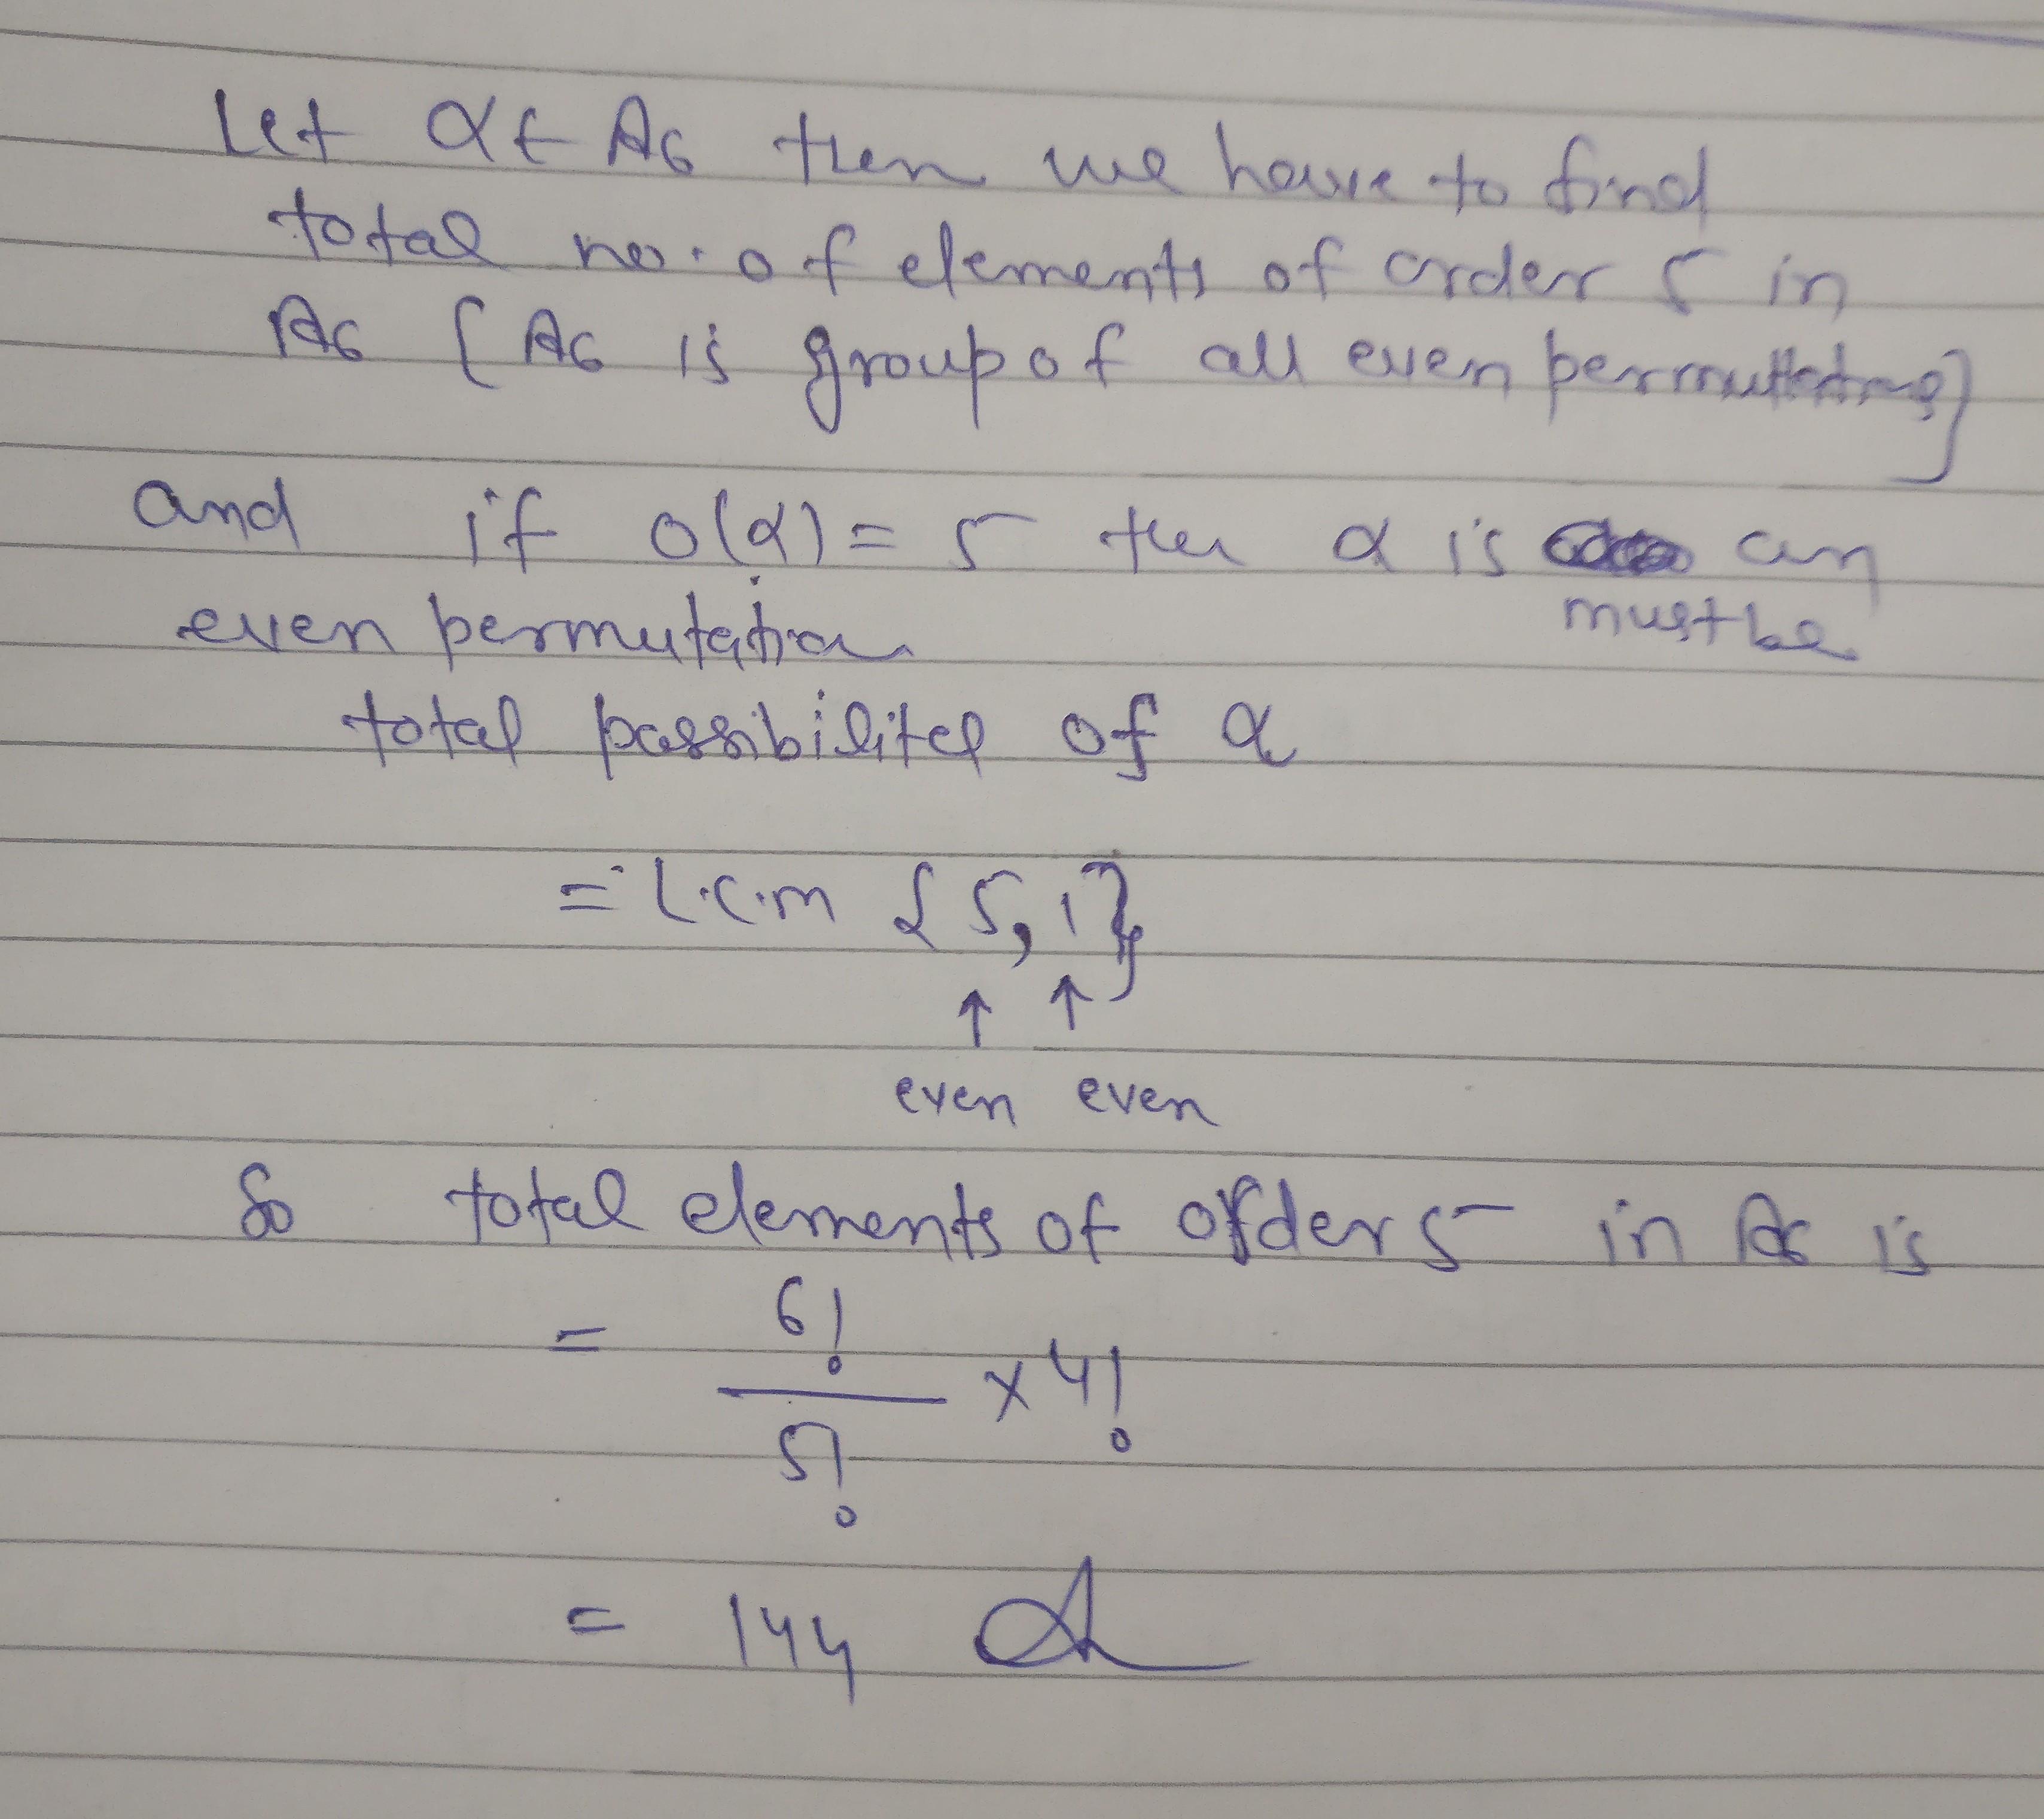 Let α ∈ A6 then we have to find
total no. of elements of order 5 in
A6 { A6 is group of all even permuttations}
and if o(α) = 5 then α is an
must be
even permutation
total possibilites of α
= l.c.m {5, 1}
↑ ↑
even even
So total elements of order 5 in A6 is
= 6!/5! × 4!
= 144